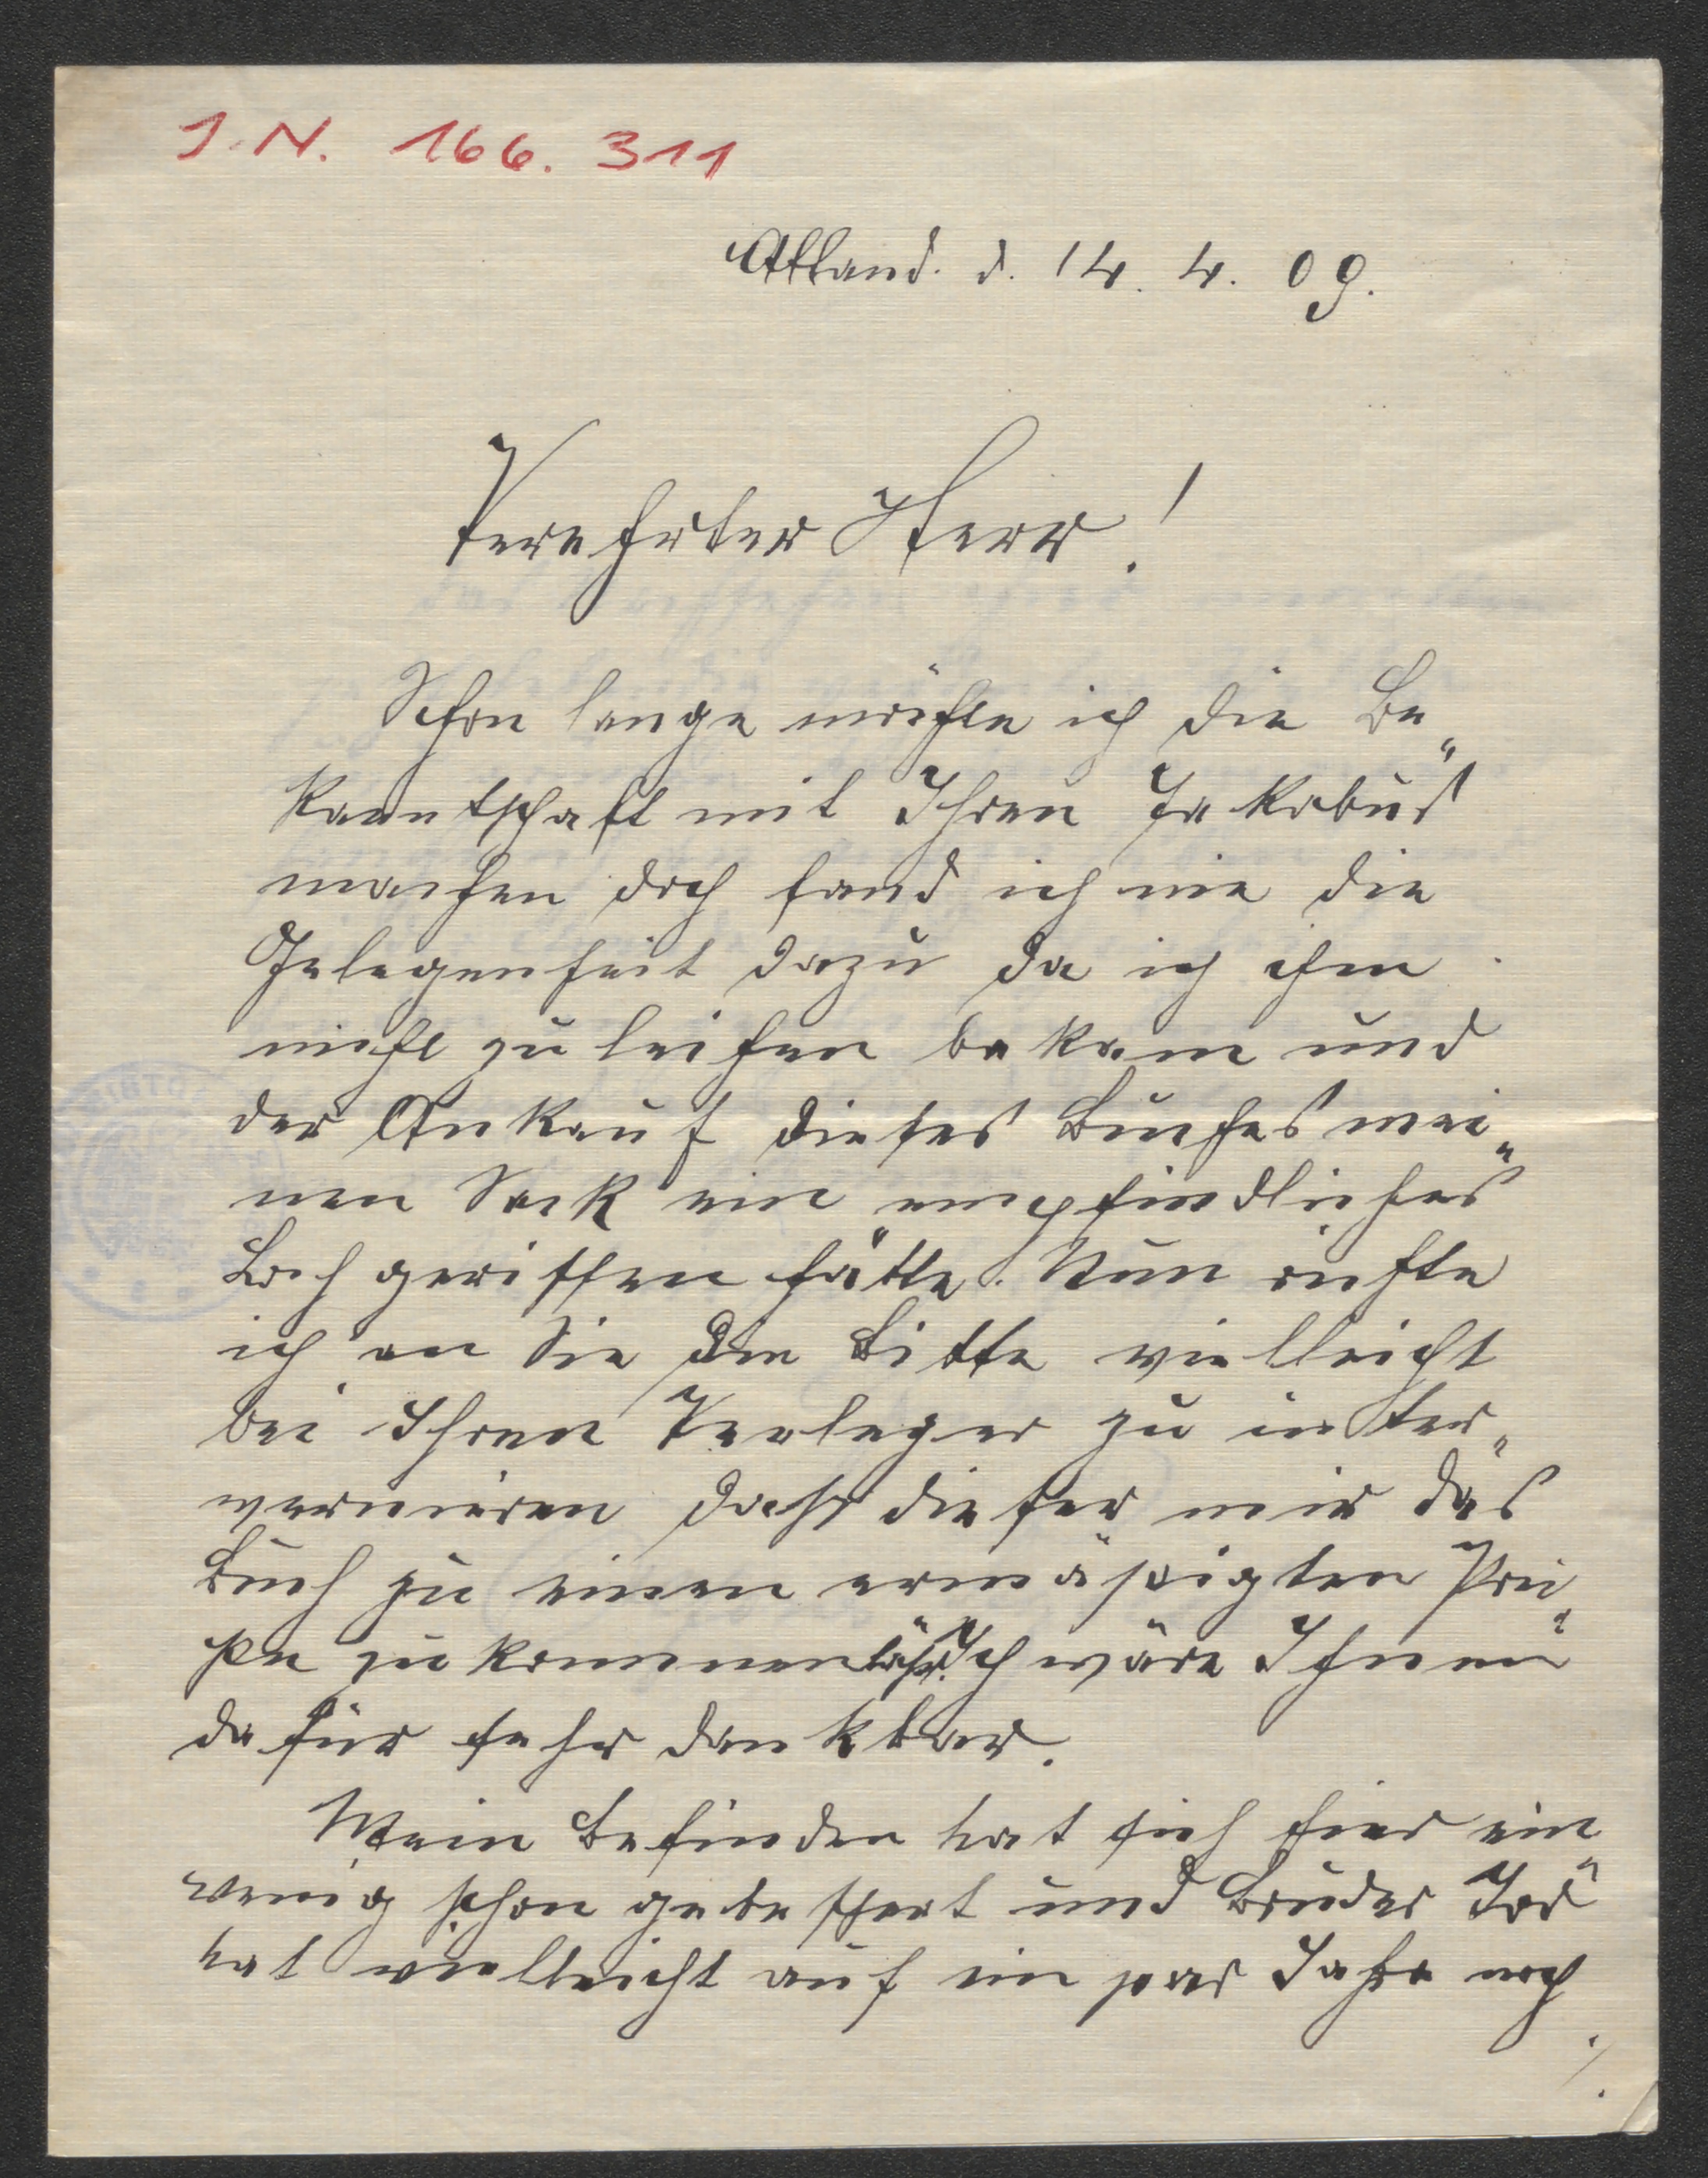 J.N. 166.311
Alland. d. 14. 4. 09.
Verehrter Herr!
Schon lange möchte ich die Be„
kanntschaft mit Ihren Jakobus
machen doch fand ich nie die
Gelegenheit dazu da ich ihn
nicht zu leihen bekam und
der Ankauf dieses Buches mei„
nen Sack ein empfindliches
Loch gerissen hätte. Nun richte
ich an Sie die Bitte vielleicht
bei Ihren Verleger zu inter„
wenieren dass dieser mir das
Buch zu einen ermäßigten Prei„
ße zu kommen läßt. Ich wäre Ihnen
dafür sehr dankbar.
Mein Befinden hat sich hier ein
wenig schon gebessert und Bruder Tod
hat vielleicht auf ein par Jahre noch
./.